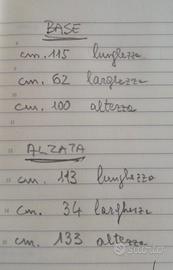 BASE
cm. 115 lunghezza
cm. 62 larghezza
cm. 100 altezza
ALZATA
cm. 113 lunghezza
cm. 34 larghezza
cm. 133 altezza